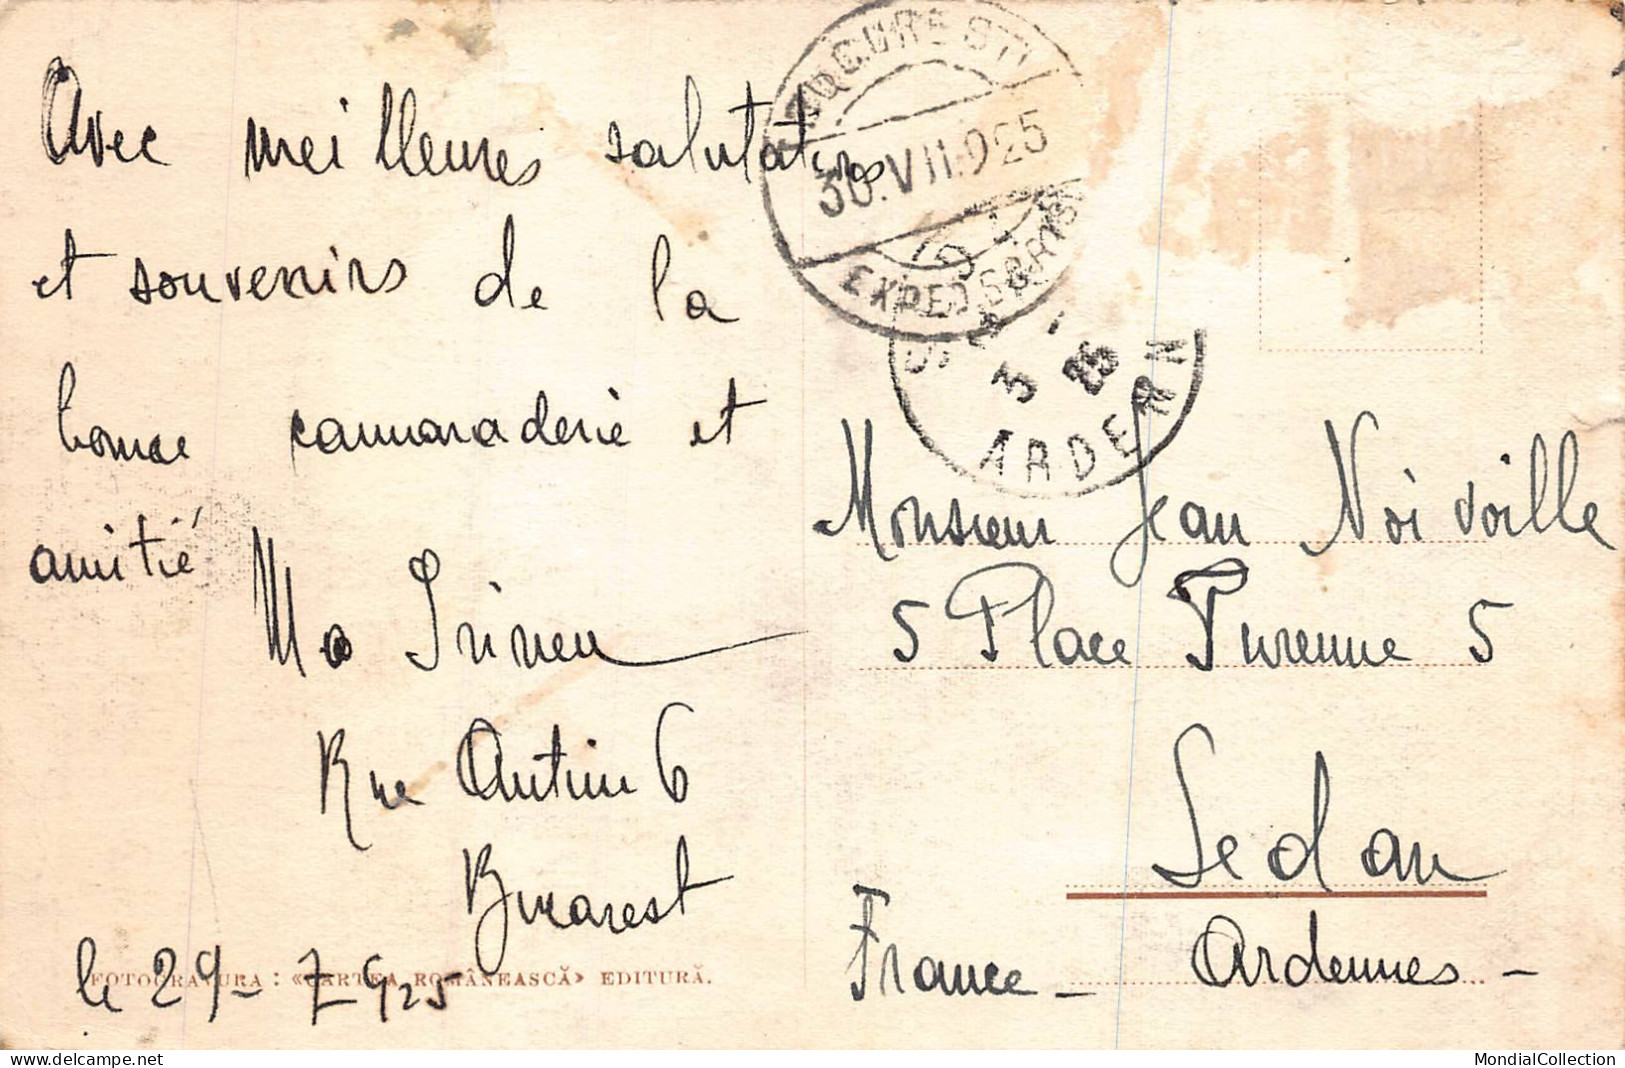 Avec meilleures salutations
et souvenirs de la
bonne cammaraderie et
amitié
Rue Antim 6
Bucarest
le 29 - 7 925
FOTOGRAVURA : «CARTEA ROMÂNEASCĂ» EDITURĂ.
BUCUREȘTI
30.VII.925
EXPED.
3 - 25
ARDENN
Monsieur Jean Noivoille
5 Place Turenne 5
Sedan
France - Ardennes -
MondialCollection